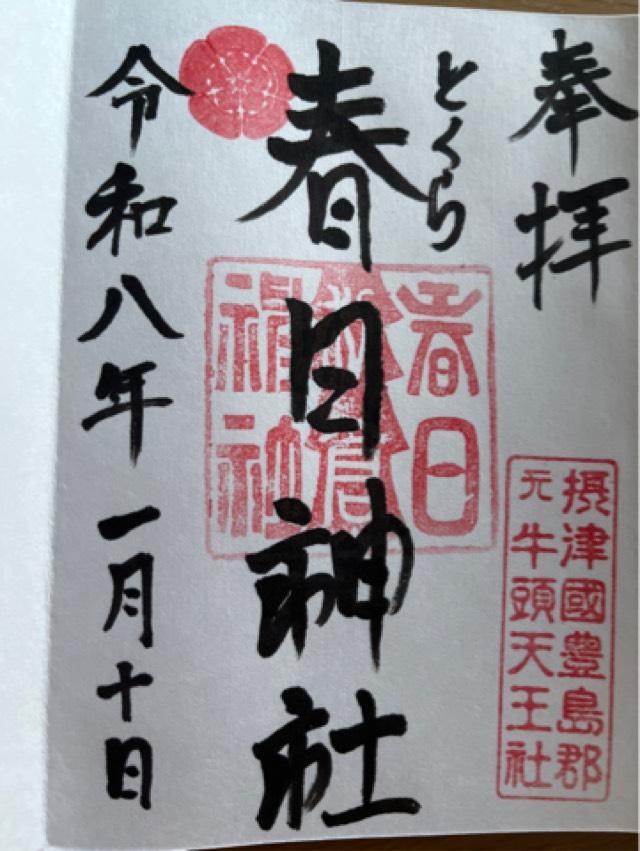 奉拝
摂津國豊島郡
元牛頭天王社
とくら
春日神社
春日
神社
令和八年一月十日